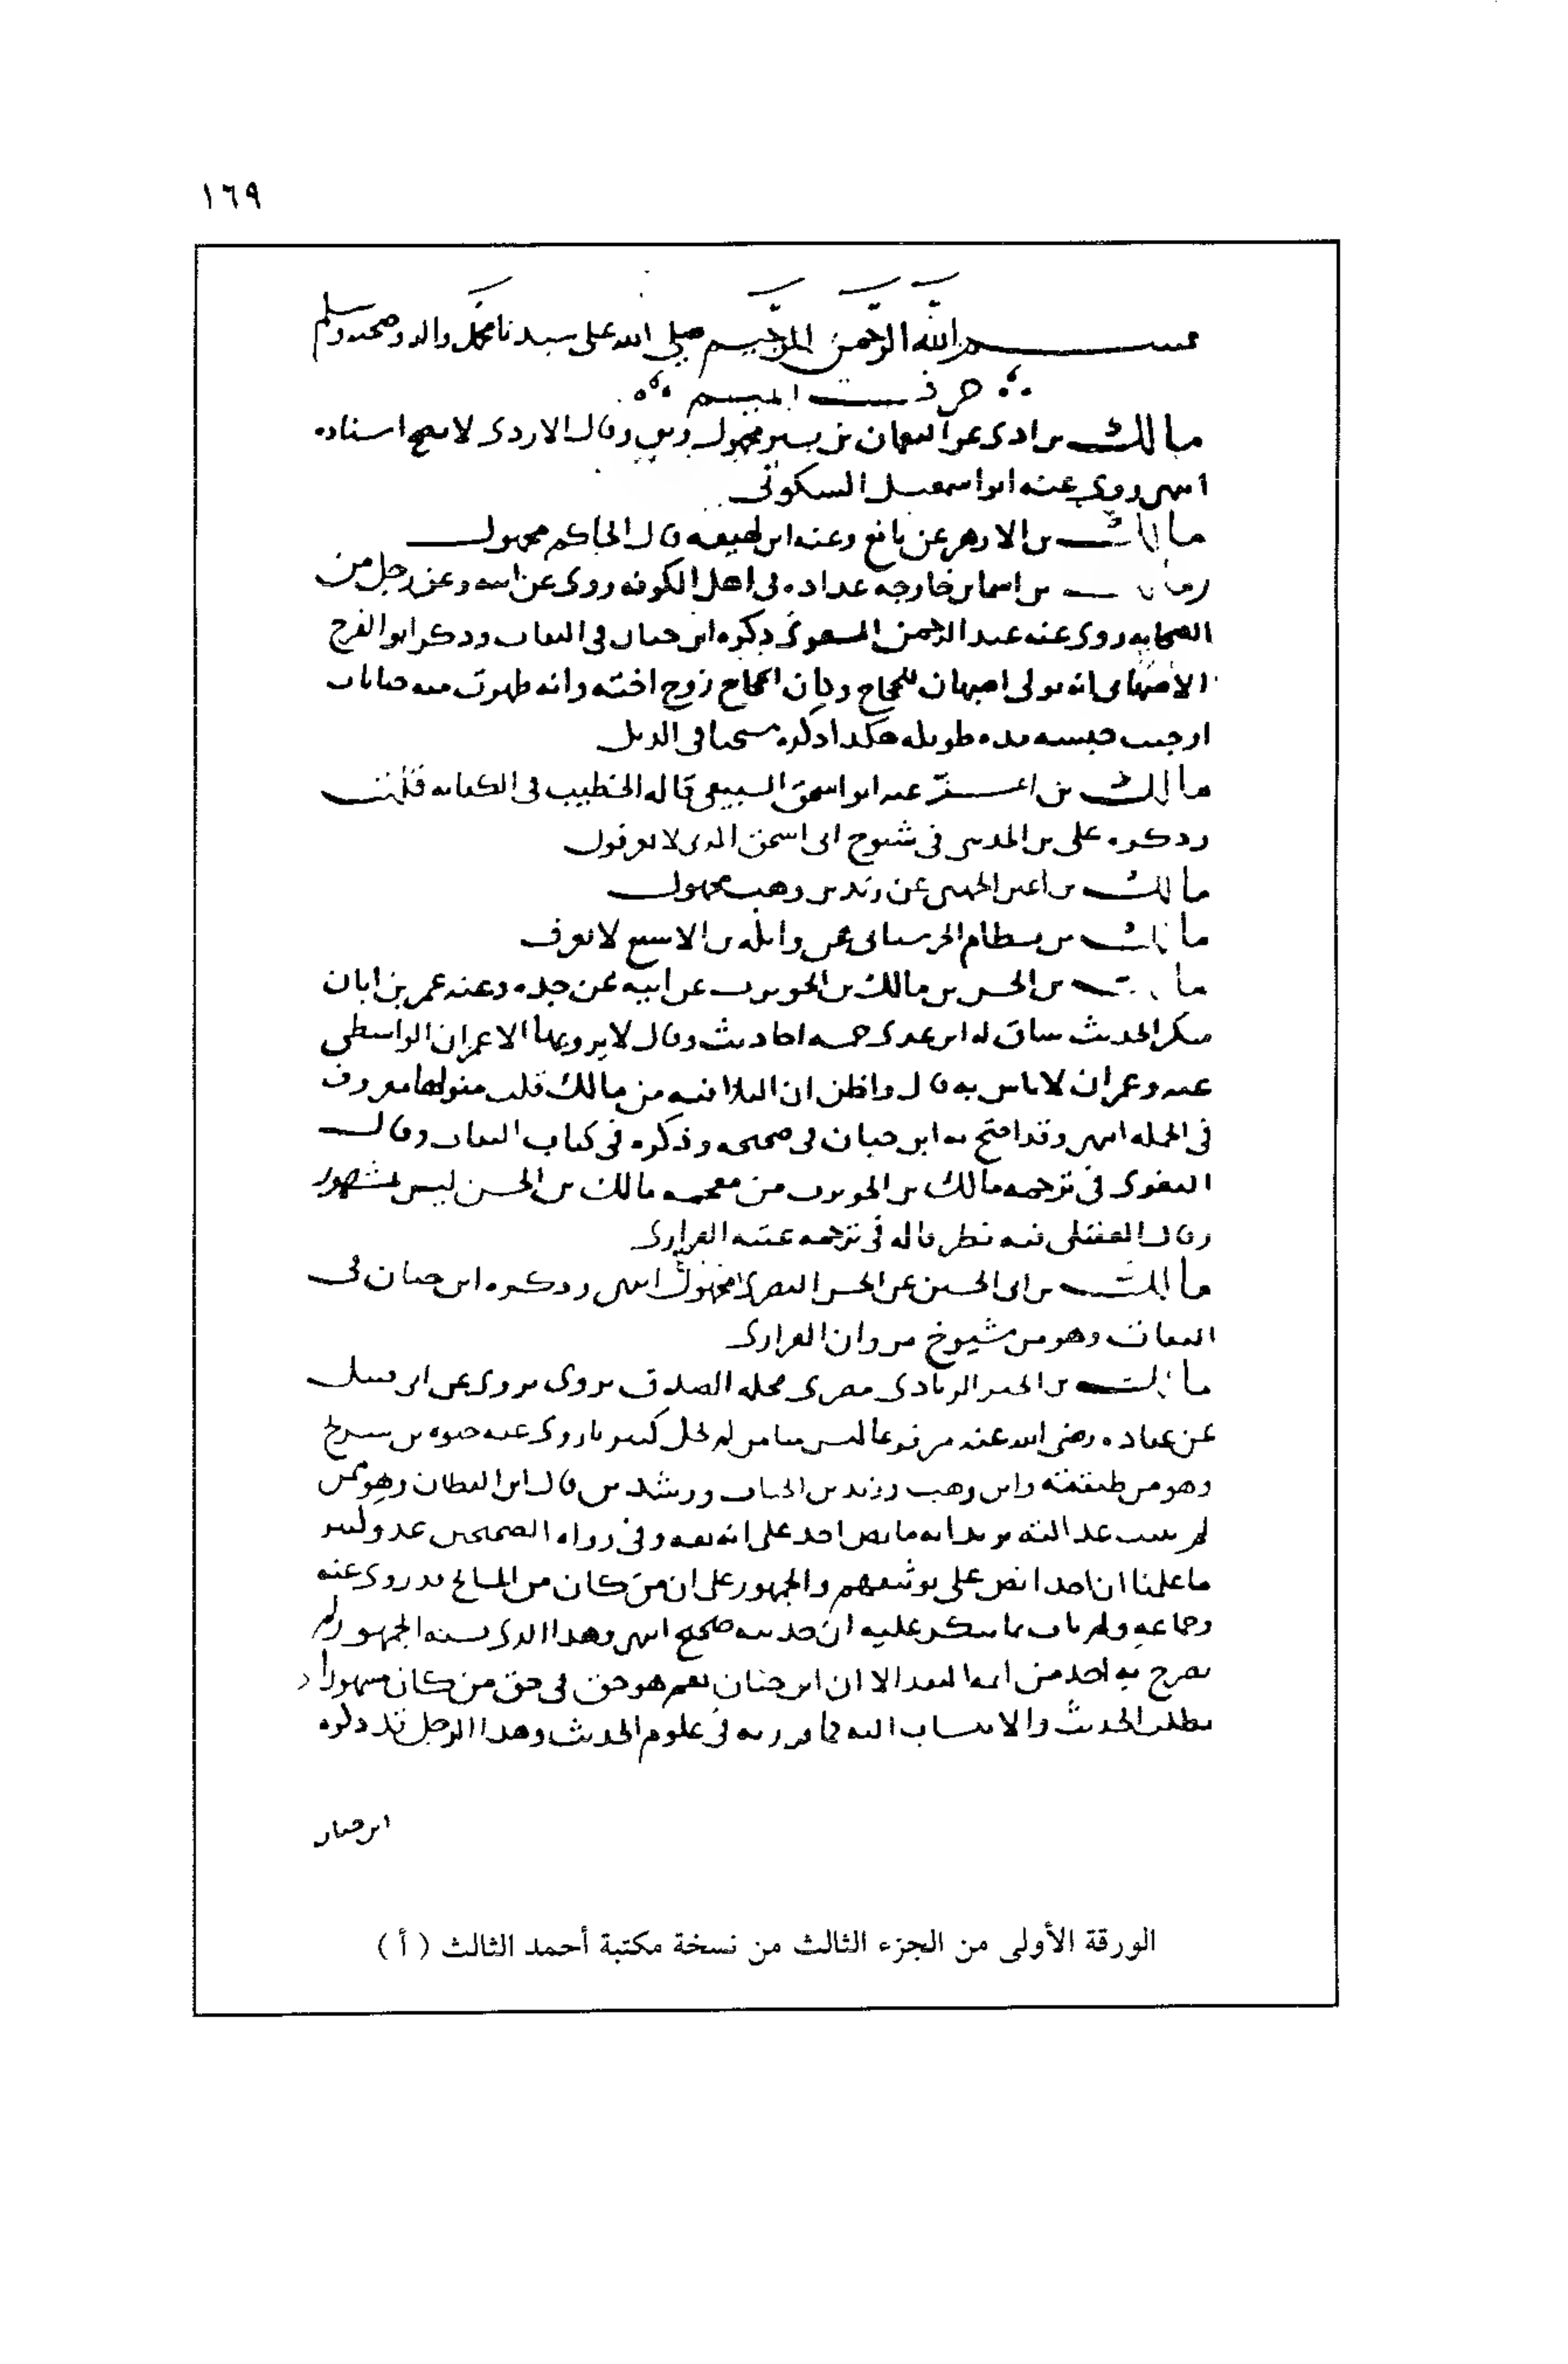 ١٦٩
بسم الله الرحمن الرحيم صلى الله على سيدنا محمد واله وصحبه وسلم
حرف الميم
مالك بن ادى عن النعمان بن بشير مجهول وقال الازدى لا يصح اسناده
انتهى روى عنه ابو اسمعيل السكونى
مالك بن الازهر عن نافع وعنه ابن لهيعة قال الحاكم مجهول
مالك بن اسما بن خارجه عداده فى اهل الكوفه روى عن ابيه وعن رجل من
الصحابه روى عنه عبد الرحمن المسعودى ذكره ابن حبان فى الثقات وذكر ابو الفرج
الاصبهانى انه تولى اصبهان للحجاج وكان الحجاج زوج اخته وانه ظهرت منه خيانات
اوجبت حبسه مده طويله هكذا ذكره شيخنا فى الذيل
مالك بن اعز عنه ابو اسحق السبيعى قاله الخطيب فى الكفايه قلت
وذكره على بن المدينى فى شيوخ ابى اسحق الذى لا يعرفون
مالك بن الجهنى عن زيد بن وهب مجهول
مالك بن بسطام الحرستانى عن واثله بن الاسقع لا يعرف
مالك بن الحسن بن مالك بن الحويرث عن ابيه عن جده وعنه عمر بن ابان
منكر الحديث ساق له ابن عدى خمسه احاديث وقال لا يرويها الا عمران الواسطى
عنه وعمران لا باس به قال واظن ان البلا فيه من مالك قلت متونها معروفه
فى الجمله انتهى وقد احتج به ابن حبان فى صحيحه وذكره فى كتاب الثقات وقال
البغوى فى ترجمه مالك بن الحويرث من معجمه مالك بن الحسن ليس بمشهور
وقال العقيلى فيه نظر قاله فى ترجمه الفزارى
مالك بن ابى الحسين عن الحسن البصرى مجهول انتهى وذكره ابن حبان فى
الثقات وهو من شيوخ مروان الفزارى
مالك بن الخير الزبادى مصرى محله الصدق يروى عن ابى قبيل
عن عباده رضى الله عنه مرفوعا ليس منا من لم يجل كبيرنا روى عنه حيوه بن شريح
وهو من طبقته وابن وهب وزيد بن الحباب ورشدين قال ابن القطان وهو ممن
لم تثبت عدالته يريد انه ما نص احد على انه ثقه وفى رواه الصحيحين عدد كثير
ما علمنا ان احدا نص على توثيقهم والجمهور على ان من كان من المشايخ قد روى عنه
جماعه ولم يات بما ينكر عليه ان حديثه صحيح انتهى وهذا الذى نسبه الجمهور لم
يصرح به احد من ائمه النقد الا ابن حبان نعم هو حق فى حق من كان مشهورا
بطلب الحديث والانتساب اليه كما قررته فى علوم الحديث وهذا الرجل قد ذكره
ابن حبان
الورقة الأولى من الجزء الثالث من نسخة مكتبة أحمد الثالث ( أ )